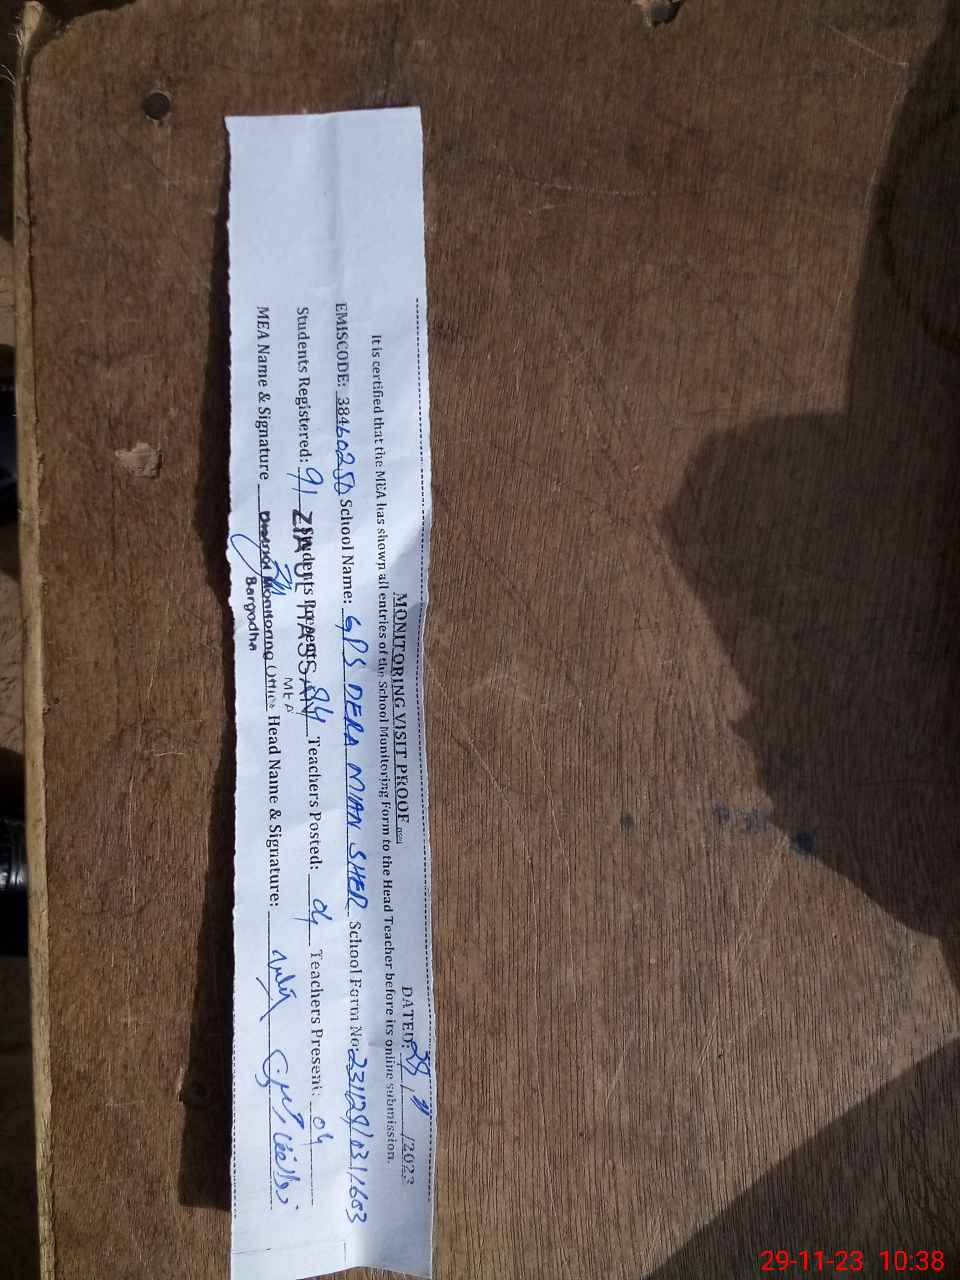 MONITORING VISIT PROOF
DATED: 28 / 11 /2023
It is certified that the MEA has shown all entries of the School Monitoring Form to the Head Teacher before its online submission.
EMISCODE: 38460250 School Name: GPS DERA MIAN SHER School Form No:
Students Registered: 91 Students Present: 84 Teachers Posted: 04 Teachers Present: 04
ZIA UL HASSAN
MEA
MEA Name & Signature Head Name & Signature: ذوالفقار
District Monitoring Office
Sargodha
29-11-23 10:38